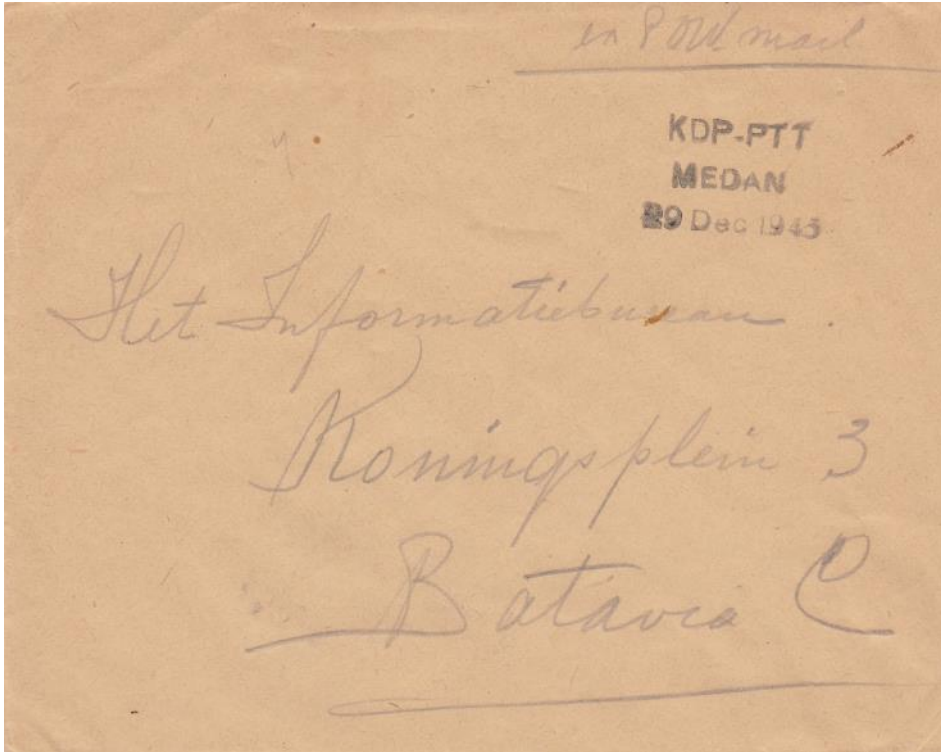 ex POW mail
KDP-PTT
MEDAN
29 Dec 1945
Het Informatiebureau.
Koningsplein 3
Batavia C